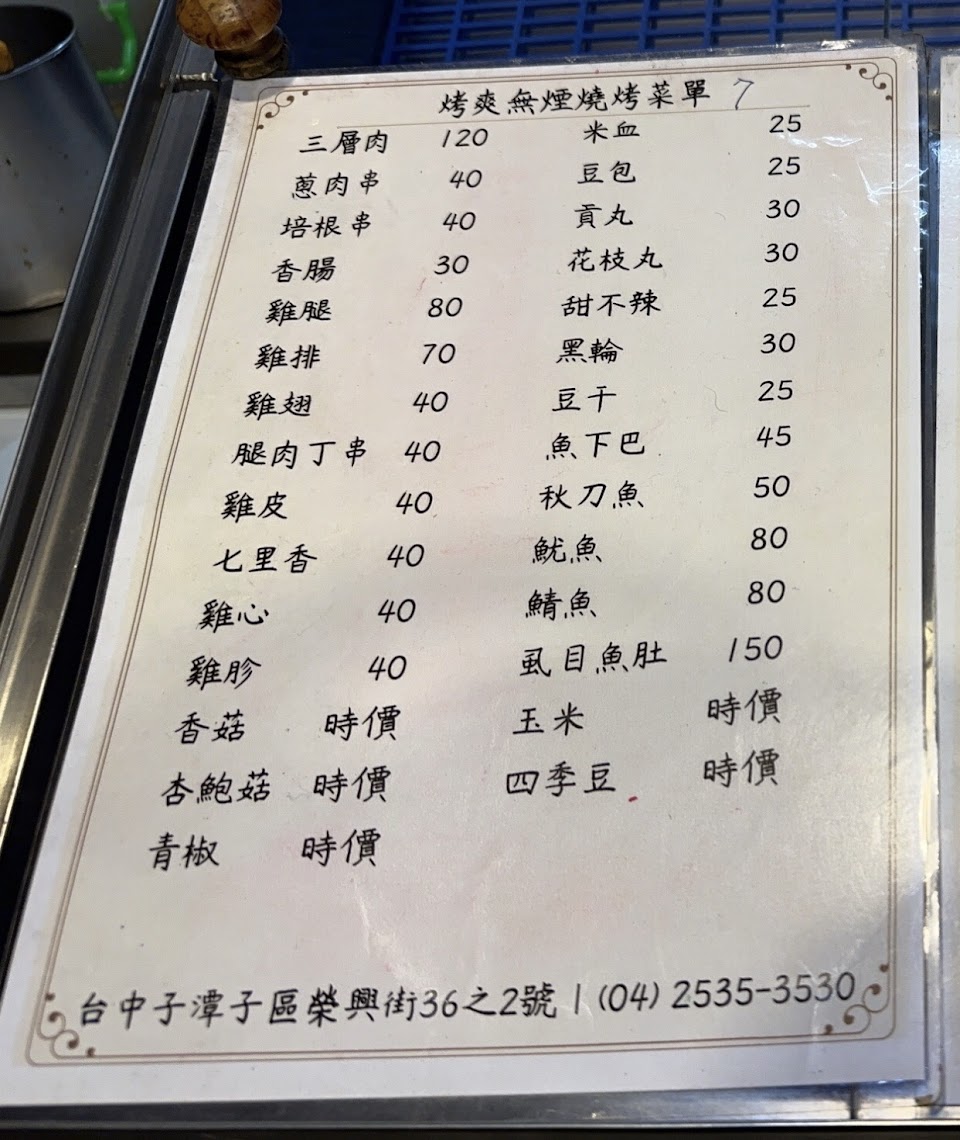 烤爽無煙燒烤菜單 7
三層肉 120 米血 25
蔥肉串 40 豆包 25
培根串 40 貢丸 30
香腸 30 花枝丸 30
雞腿 80 甜不辣 25
雞排 70 黑輪 30
雞翅 40 豆干 25
腿肉丁串 40 魚下巴 45
雞皮 40 秋刀魚 50
七里香 40 魷魚 80
雞心 40 鯖魚 80
雞胗 40 虱目魚肚 150
香菇 時價 玉米 時價
杏鮑菇 時價 四季豆 時價
青椒 時價
台中子潭子區榮興街36之2號 | (04) 2535-3530